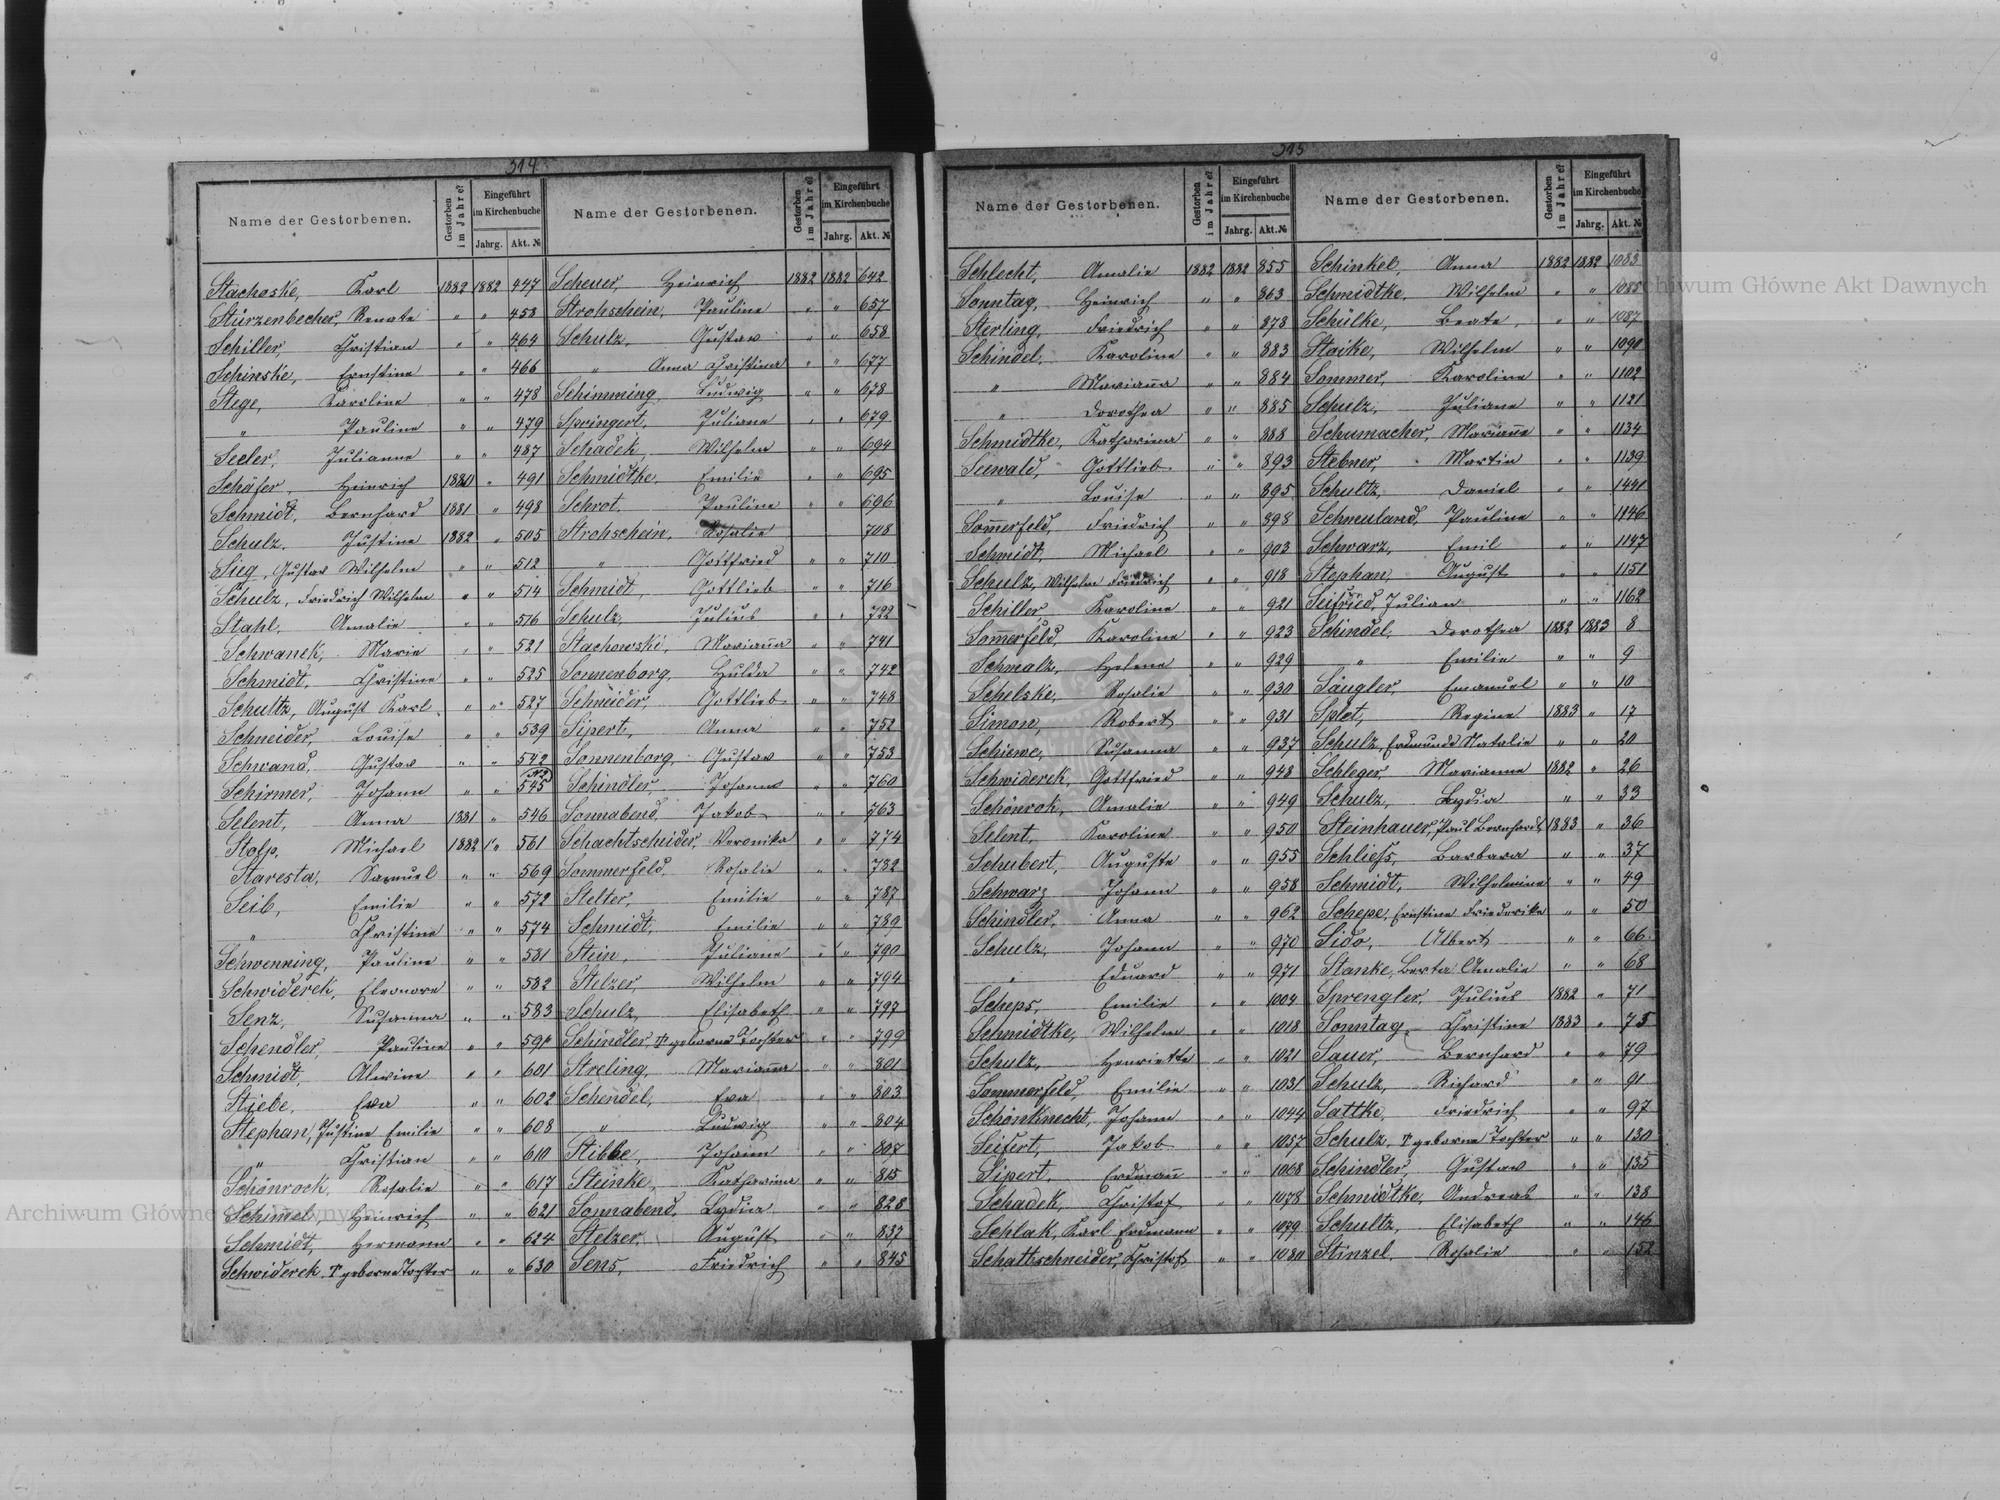 314
Name der Gestorbenen. Gestorben im Jahre? Eingeführt im Kirchenbuche Jahrg. Akt. № Name der Gestorbenen. Gestorben im Jahre? Eingeführt im Kirchenbuche Jahrg. Akt. №
Stachoske, Karl 1882 1882 447 Scheuer, Heinrich 1882 1882 642
Stürzenbecher, Renate " " 453 Strohschein, Pauline " " 657
Schiller, Christian " " 464 Schulz, Gustav " " 658
Schinske, Ernstine " " 466 " Anna Christina " " 677
Stege, Karoline " " 478 Schimming, Ludwig " " 678
" Pauline " " 479 Springert, Juliane " " 679
Seeler, Julianne " " 487 Schadek, Wilhelm " " 694
Schäfer, Heinrich 1880 " 491 Schmidtke, Emilie " " 695
Schmidt, Bernhard 1881 " 498 Schrot, Pauline " " 696
Schulz, Justine 1882 " 505 Strohschein, Rosalie 708
Sieg, Gustav Wilhelm " " 512 " Gottfried " " 710
Schulz, Friedrich Wilhelm " " 514 Schmidt, Gottlieb " " 716
Stahl, Amalie " " 516 Schulz, Julius " " 722
Schwanek, Marie " " 521 Stachowski, Marianna " " 741
Schmidt, Christine " " 525 Sonnenborg, Hulda " " 742
Schultz, August Karl " " 527 Schneider, Gottlieb " " 748
Schneider, Louise " " 539 Sipert, Anna " " 752
Schwand, Gustav " " 542 Sonnenborg, Gustav " " 753
Schirmer, Johann " " 545 Schindler, Johanna " " 760
Selent, Anna 1881 " 546 Sonnabend, Jakob " " 763
Stolp, Michael 1882 " 561 Schachtschneider, Veronika " " 774
Staresta, Samuel " " 569 Sommerfeld, Rosalie " " 782
Seib, Emilie " " 572 Stelter, Emilie " " 787
" Christine " " 574 Schmidt, Emilie " " 789
Schwenning, Pauline " " 581 Stein, Juliane " " 790
Schwiderek, Eleonore " " 582 Stelzer, Wilhelm " " 794
Senz, Susanna " " 583 Schulz, Elisabeth " " 797
Schendler, Pauline " " 591 Schindler, T geborne Tochter " " 799
Schmidt, Alwine " " 601 Streling, Marianna " " 801
Stiebe, Eva " " 602 Schendel, Eva " " 803
Stephan, Justine Emilie " " 608 " Ludwig " " 804
" Christian " " 610 Stibbe, Johann " " 807
Schönrock, Rosalie " " 617 Steinke, Katharina " " 815
Schimel, Heinrich " " 621 Sonnabend, Lydia " " 828
Schmidt, Hermann " " 624 Stelzer, August " " 837
Schwiderek, T geborne Tochter " " 630 Sens, Friedrich " " 845
315
Name der Gestorbenen. Gestorben im Jahre? Eingeführt im Kirchenbuche Jahrg. Akt. № Name der Gestorbenen. Gestorben im Jahre? Eingeführt im Kirchenbuche Jahrg. Akt. №
Schlecht, Amalie 1882 1882 855 Schinkel, Anna 1882 1882 1083
Sonntag, Heinrich " " 863 Schmidtke, Wilhelm " " 1085
Sterling, Friedrich " " 878 Schülke, Beate " " 1087
Schindel, Karoline " " 883 Staike, Wilhelm " " 1090
" Marianna " " 884 Sommer, Karoline " " 1102
" Dorothea " " 885 Schulz, Juliane " " 1121
Schmidtke, Katharina " " 888 Schumacher, Marianne " " 1134
Seewald, Gottlieb " " 893 Stebner, Martin " " 1139
" Louise " " 895 Schultz, Daniel " " 1441
Sommerfeld, Friedrich " " 898 Schmuland, Pauline " " 1146
Schmidt, Michael " " 903 Schwarz, Emil " " 1147
Schulz, Wilhelm Friedrich " " 918 Stephan, August " " 1151
Schiller, Karoline " " 921 Seifried, Julian " " 1162
Sommerfeld, Karoline " " 923 Schindel, Dorothea 1882 1883 8
Schmalz, Helena " " 929 " Emilie " " 9
Schelske, Rosalie " " 930 Sängler, Emanuel " " 10
Simon, Robert " " 931 Splet, Regine 1883 " 17
Schiewe, Susanna " " 937 Schulz, Erdmunde Natalie " " 20
Schwiderek, Gottfried " " 948 Schleger, Marianne 1882 " 26
Schönrok, Amalie " " 949 Schulz, Lydia " " 33
Selent, Karoline " " 950 Steinhauer, Paul Bernhardt 1883 " 36
Schubert, Auguste " " 955 Schliefs, Barbara " " 37
Schwarz, Johann " " 958 Schmidt, Wilhelmine " " 49
Schindler, Anna " " 962 Schepe, Ernstine Friederike " " 50
Schulz, Johann " " 970 Sido, Albert " " 66
" Eduard " " 971 Stanke, Berta Amalie " " 68
Scheps, Emilie " " 1004 Sprengler, Julius 1882 " 71
Schmidtke, Wilhelm " " 1018 Sonntag, Christine 1883 " 75
Schulz, Henriette " " 1021 Sauer, Bernhard " " 79
Sommerfeld, Emilie " " 1031 Schulz, Richard " " 91
Schönknecht, Johann " " 1044 Sattke, Friedrich " " 97
Seifert, Jakob " " 1057 Schulz, T geborne Tochter " " 130
Sipert, Erdmann " " 1068 Schindler, Gustav " " 135
Schadek, Christof " " 1078 Schmidtke, Andreas " " 138
Schlak, Karl Erdmann " " 1079 Schultz, Elisabeth " " 146
Schattschneider, Christof " " 1080 Stinzel, Rosalie " " 152
Archiwum Główne Akt Dawnych
Archiwum Główne Akt Dawnych